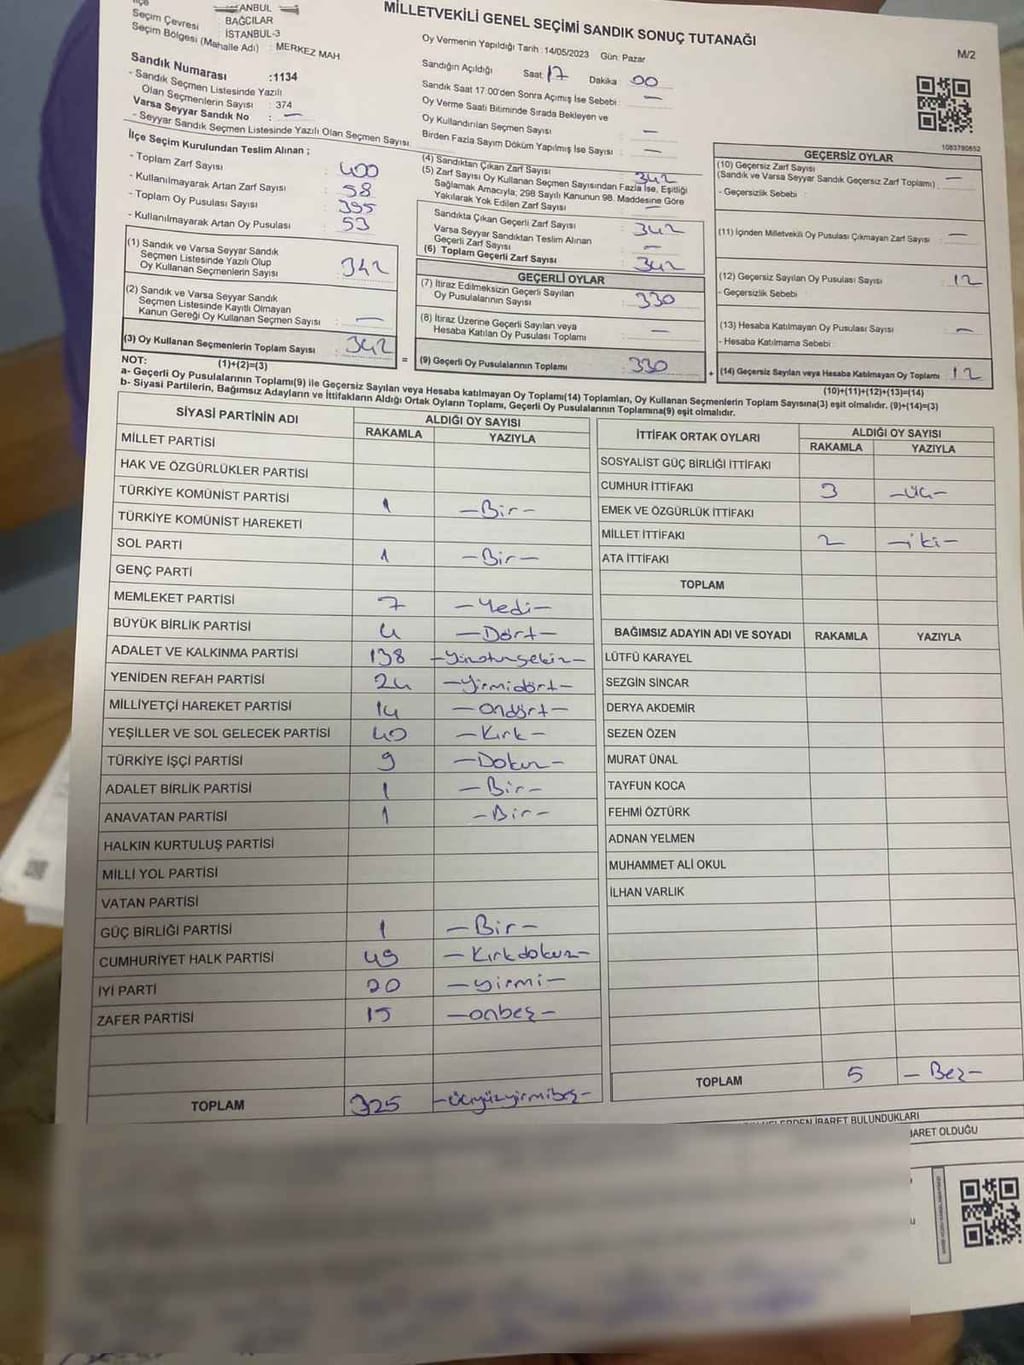 MİLLETVEKİLİ GENEL SEÇİMİ SANDIK SONUÇ TUTANAĞI
M/2
ANBUL
Seçim Çevresi BAĞCILAR
Seçim Bölgesi (Mahalle Adı) : İSTANBUL-3
MERKEZ MAH
Sandık Numarası :1134
- Sandık Seçmen Listesinde Yazılı
Olan Seçmenlerin Sayısı : 374
Varsa Seyyar Sandık No : —
- Seyyar Sandık Seçmen Listesinde Yazılı Olan Seçmen Sayısı
Oy Vermenin Yapıldığı Tarih :14/05/2023 Gün: Pazar
Sandığın Açıldığı Saat: 17 Dakika 00
Sandık Saat 17:00'den Sonra Açımış İse Sebebi : —
Oy Verme Saati Bitiminde Sırada Bekleyen ve
Oy Kullandırılan Seçmen Sayısı —
Birden Fazla Sayım Döküm Yapılmış İse Sayısı : —
1083780652
İlçe Seçim Kurulundan Teslim Alınan ;
- Toplam Zarf Sayısı : 400
- Kullanılmayarak Artan Zarf Sayısı : 58
- Toplam Oy Pusulası Sayısı : 395
- Kullanılmayarak Artan Oy Pusulası : 53
(1) Sandık ve Varsa Seyyar Sandık
Seçmen Listesinde Yazılı Olup
Oy Kullanan Seçmenlerin Sayısı : 342
(2) Sandık ve Varsa Seyyar Sandık
Seçmen Listesinde Kayıtlı Olmayan
Kanun Gereği Oy Kullanan Seçmen Sayısı : —
(3) Oy Kullanan Seçmenlerin Toplam Sayısı : 342
(1)+(2)=(3)
(4) Sandıktan Çıkan Zarf Sayısı : 342
(5) Zarf Sayısı Oy Kullanan Seçmen Sayısından Fazla İse, Eşitliği
Sağlamak Amacıyla; 298 Sayılı Kanunun 98. Maddesine Göre
Yakılarak Yok Edilen Zarf Sayısı : —
Sandıkta Çıkan Geçerli Zarf Sayısı : 342
Varsa Seyyar Sandıktan Teslim Alınan
Geçerli Zarf Sayısı : —
(6) Toplam Geçerli Zarf Sayısı : 342
GEÇERLİ OYLAR
(7) İtiraz Edilmeksizin Geçerli Sayılan
Oy Pusulalarının Sayısı : 330
(8) İtiraz Üzerine Geçerli Sayılan veya
Hesaba Katılan Oy Pusulası Toplamı : —
= (9) Geçerli Oy Pusulalarının Toplamı : 330
GEÇERSİZ OYLAR
(10) Geçersiz Zarf Sayısı
(Sandık ve Varsa Seyyar Sandık Geçersiz Zarf Toplamı) : —
- Geçersizlik Sebebi :
(11) İçinden Milletvekili Oy Pusulası Çıkmayan Zarf Sayısı : —
(12) Geçersiz Sayılan Oy Pusulası Sayısı : 12
- Geçersizlik Sebebi :
(13) Hesaba Katılmayan Oy Pusulası Sayısı : —
- Hesaba Katılmama Sebebi :
+ (14) Geçersiz Sayılan veya Hesaba Katılmayan Oy Toplamı : 12
(10)+(11)+(12)+(13)=(14)
NOT:
a- Geçerli Oy Pusulalarının Toplamı(9) ile Geçersiz Sayılan veya Hesaba katılmayan Oy Toplamı(14) Toplamları, Oy Kullanan Seçmenlerin Toplam Sayısına(3) eşit olmalıdır. (9)+(14)=(3)
b- Siyasi Partilerin, Bağımsız Adayların ve İttifakların Aldığı Ortak Oyların Toplamı, Geçerli Oy Pusulalarının Toplamına(9) eşit olmalıdır.
SİYASİ PARTİNİN ADI ALDIĞI OY SAYISI
RAKAMLA YAZIYLA
MİLLET PARTİSİ
HAK VE ÖZGÜRLÜKLER PARTİSİ
TÜRKİYE KOMÜNİST PARTİSİ 1 -Bir-
TÜRKİYE KOMÜNİST HAREKETİ
SOL PARTİ 1 -Bir-
GENÇ PARTİ
MEMLEKET PARTİSİ 7 -Yedi-
BÜYÜK BİRLİK PARTİSİ 4 -Dört-
ADALET VE KALKINMA PARTİSİ 138
YENİDEN REFAH PARTİSİ 24 -Yirmidört-
MİLLİYETÇİ HAREKET PARTİSİ 14 -Ondört-
YEŞİLLER VE SOL GELECEK PARTİSİ 40 -Kırk-
TÜRKİYE İŞÇİ PARTİSİ 9 -Dokuz-
ADALET BİRLİK PARTİSİ 1 -Bir-
ANAVATAN PARTİSİ 1 -Bir-
HALKIN KURTULUŞ PARTİSİ
MİLLİ YOL PARTİSİ
VATAN PARTİSİ
GÜÇ BİRLİĞİ PARTİSİ 1 -Bir-
CUMHURİYET HALK PARTİSİ 49 -Kırkdokuz-
İYİ PARTİ 20 -yirmi-
ZAFER PARTİSİ 15 -onbeş-
TOPLAM 325 -üçyüzyirmibeş-
İTTİFAK ORTAK OYLARI ALDIĞI OY SAYISI
RAKAMLA YAZIYLA
SOSYALİST GÜÇ BİRLİĞİ İTTİFAKI
CUMHUR İTTİFAKI 3 -üç-
EMEK VE ÖZGÜRLÜK İTTİFAKI
MİLLET İTTİFAKI 2 -iki-
ATA İTTİFAKI
TOPLAM
BAĞIMSIZ ADAYIN ADI VE SOYADI RAKAMLA YAZIYLA
LÜTFÜ KARAYEL
SEZGİN SİNCAR
DERYA AKDEMİR
SEZEN ÖZEN
MURAT ÜNAL
TAYFUN KOCA
FEHMİ ÖZTÜRK
ADNAN YELMEN
MUHAMMET ALİ OKUL
İLHAN VARLIK
TOPLAM 5 -Beş-
İBARET BULUNDUKLARI
OLDUĞU